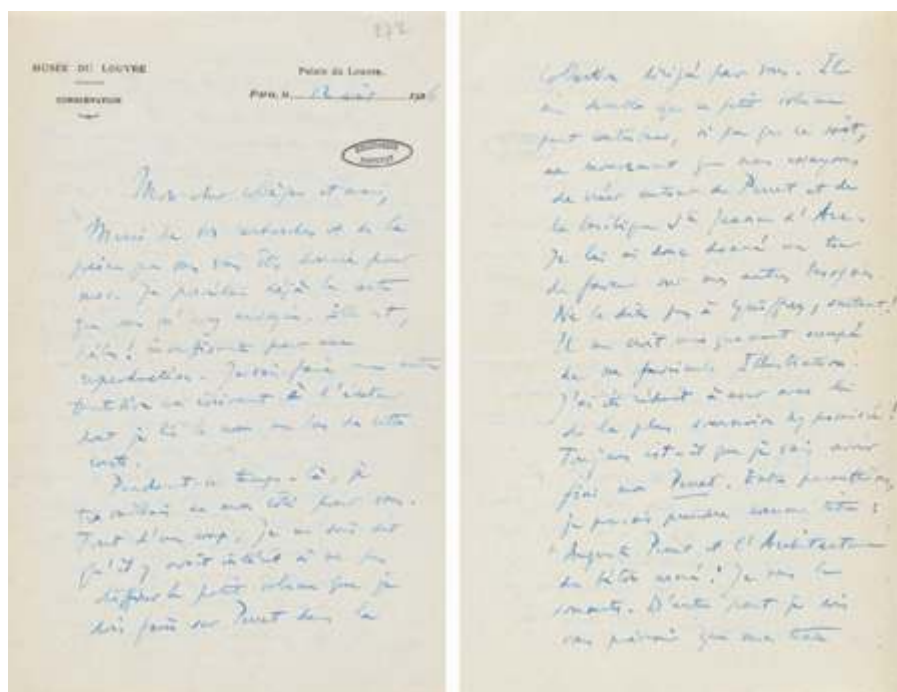 272
MUSÉE DU LOUVRE
CONSERVATION
Palais du Louvre.
Paris, le 12 1926
Mon cher et ami,
Merci de vos recherches et de la
peine que vous vous êtes donnée pour
moi. Je déjà la carte
que vous m'avez envoyée. Elle est,
hélas ! insuffisante pour une
reproduction. Je vais faire une autre
en écrivant à l'
dont je lis le nom au bas de cette
carte.
Pendant ce temps-là, je
travaillais de mon côté pour vous.
Tout d'un coup, je me suis dit
qu'il y avait intérêt à ne pas
différer le petit volume que je
dois faire sur Perret dans la
collection dirigée par vous. Il
me semble que ce petit volume
peut , si peu que ce soit,
au mouvement que nous essayons
de créer autour de Perret et de
la basilique Ste Jeanne d'Arc.
Je lui ai donc donné un tour
de faveur sur mes autres .
Ne le dites pas à Guiffrey, surtout !
Il me croit uniquement occupé
de sa Illustration.
J'ai
de la plus !
Toujours est-il que je vais avoir
fini mon Perret. Entre parenthèses,
je pensais prendre comme titre :
"Auguste Perret et l'Architecture
du béton armé". Je vous le
soumets. D'autre part je dois
vous prévenir que mon texte